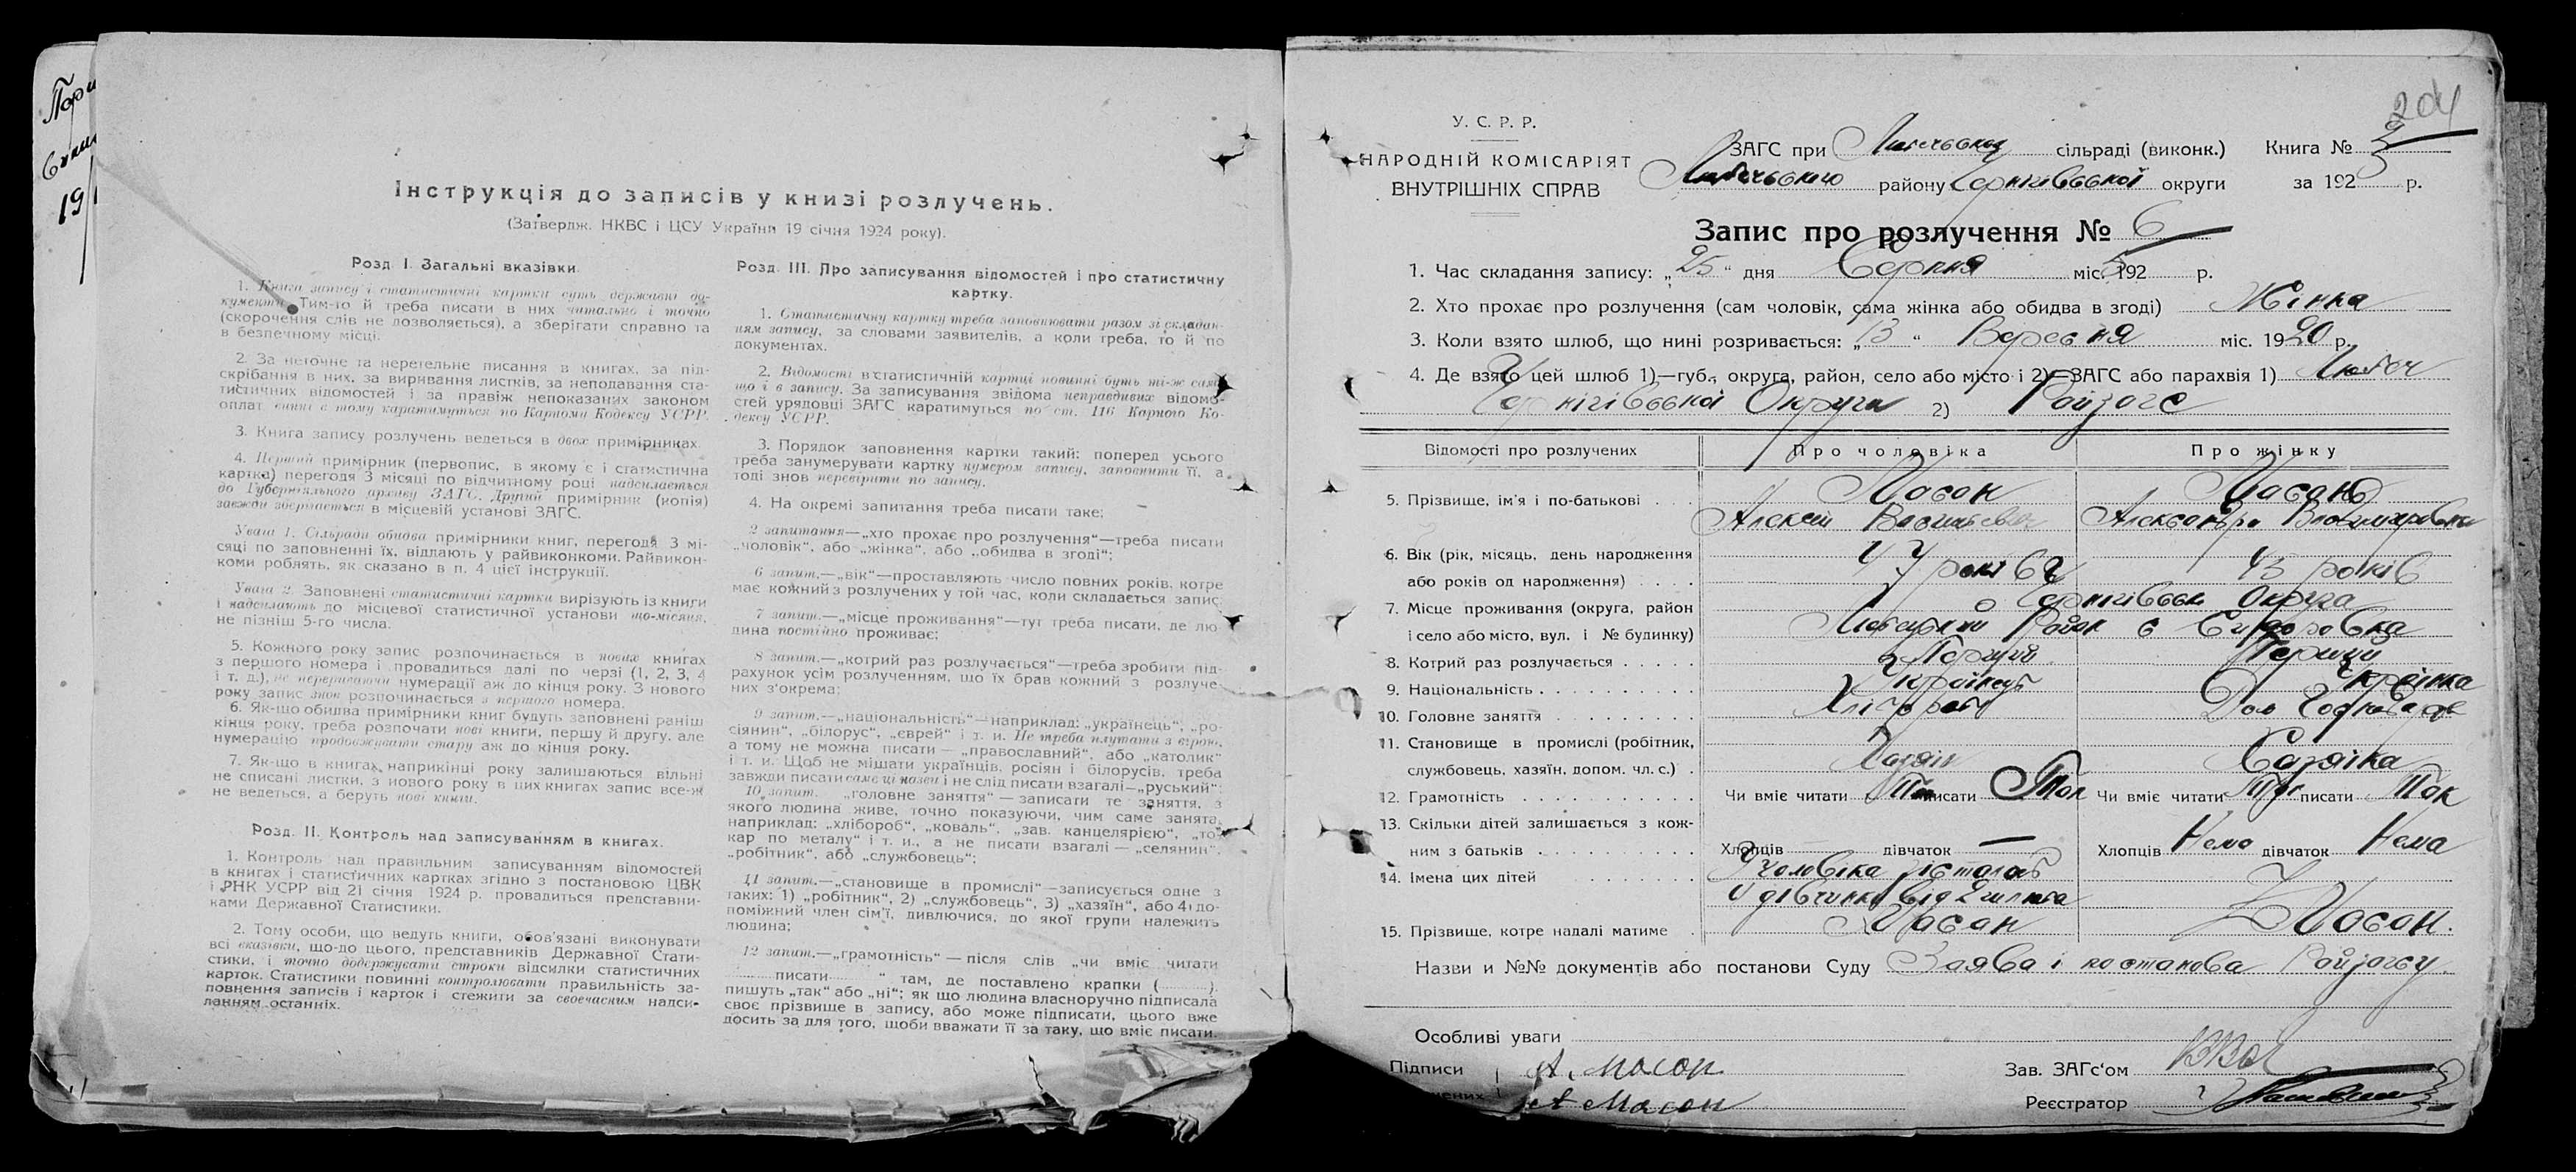 Інструкція до записів у книзі розлучень.
(Затвердж. НКВС і ЦСУ України 19 січня 1924 року).
Розд. I. Загальні вказівки.
1. Книги запису і статистичні картки суть державні до-
кументи. Тим-то й треба писати в них читально і точно
(скорочення слів не дозволяється), а зберігати справно та
в безпечному місці.
2. За неточне та неретельне писання в книгах, за під-
скрібання в них, за виривання листків, за неподавання ста-
тистичних відомостей і за правіж непоказаних законом
оплат винні в тому каратимуться по Карному Кодексу УСРР.
3. Книга запису розлучень ведеться в двох примірниках.
4. Перший примірник (первопис, в якому є і статистична
картка) перегодя 3 місяці по відчитному році надсилається
до Губерніяльного архіву ЗАГС. Другий примірник (копія)
завжди зберігається в місцевій установі ЗАГС.
Увага 1. Сільради обидва примірники книг, перегодя 3 мі-
сяці по заповненні їх, відлають у райвиконкоми. Райвикон-
коми роблять, як сказано в п. 4 цієї інструкції.
Увага 2. Заповнені статистичні картки вирізують із книги
і надсилають до місцевої статистичної установи що-місяця,
не пізніш 5-го числа.
5. Кожного року запис розпочинається в нових книгах
з першого номера і провадиться далі по черзі (1, 2, 3, 4
і т. д.), не перериваючи нумерації аж до кінця року. З нового
року запис знов розпочинається з першого номера.
6. Як-що обидва примірники книг будуть заповнені раніш
кінця року, треба розпочати нові книги, першу й другу, але
нумерацію продовжувати стару аж до кінця року.
7. Як-що в книгах наприкінці року залишаються вільні
не списані листки, з нового року в цих книгах запис все-ж
не ведеться, а беруть нові книги.
Розд. II. Контроль над записуванням в книгах.
1. Контроль над правильним записуванням відомостей
в книгах і статистичних картках згідно з постановою ЦВК
і РНК УСРР від 21 січня 1924 р. провадиться представни-
ками Державної Статистики.
2. Тому особи, що ведуть книги, обов'язані виконувати
всі вказівки, що-до цього, представників Державної Стати-
стики, і точно додержувати строки відсилки статистичних
карток. Статистики повинні контролювати правильність за-
повнення записів і карток і стежити за своєчасним надси-
ланням останніх.
Розд. III. Про записування відомостей і про статистичну
картку.
1. Статистичну картку треба заповнювати разом зі складан-
ням запису, за словами заявителів, а коли треба, то й по
документах.
2. Відомості в статистичній картці повинні буть ті-ж самі
що і в запису. За записування звідома неправдивих відомо-
стей урядовці ЗАГС каратимуться по ст. 116 Карного Ко-
дексу УСРР.
3. Порядок заповнення картки такий: поперед усього
треба занумерувати картку нумером запису, заповнити її, а
тоді знов перевірити по запису.
4. На окремі запитання треба писати таке:
2 запитання—„хто прохає про розлучення“—треба писати
„чоловік“, або „жінка“, або „обидва в згоді“;
6 запит.—„вік“—проставляють число повних років, котре
має кожний з розлучених у той час, коли складається запис;
7 запит.—„місце проживання“—тут треба писати, де лю
дина постійно проживає;
8 запит.—„котрий раз розлучається“—треба зробити під-
рахунок усім розлученням, що їх брав кожний з розлуче-
них з'окрема;
9 запит.—„національність“—наприклад: „українець“, „ро-
сіянин“, „білорус“, „єврей“ і т. и. Не треба плутати з вірою,
а тому не можна писати — „православний“, або „католик“
і т. и. Щоб не мішати українців, росіян і білорусів, треба
завжди писати саме ці назви і не слід писати взагалі—„руський“;
10 запит. „головне заняття“ — записати те заняття, з
якого людина живе, точно показуючи, чим саме занята,
наприклад: „хлібороб“, „коваль“, „зав. канцелярією“, „то-
кар по металу“ і т. и., а не писати взагалі — „селянин“,
„робітник“, або „службовець“;
11 запит.—„становище в промислі“—записується одне з
таких: 1) „робітник“, 2) „службовець“, 3) „хазяїн“, або 4) до-
поміжний член сім'ї, дивлючися, до якої групи належить
людина;
12 запит.—„грамотність“ — після слів „чи вміє читати
писати “ там, де поставлено крапки ( )
пишуть „так“ або „ні“; як що людина власноручно підписала
своє прізвище в запису, або може підписати, цього вже
досить за для того, щоби вважати її за таку, що вміє писати.
204
У. С. Р. Р.
НАРОДНІЙ КОМІСАРІЯТ
ВНУТРІШНІХ СПРАВ
ЗАГС при Любечьській сільраді (виконк.) Книга №
Любечьського району Чернігівської округи за 192 р.
Запис про розлучення № 6
1. Час складання запису: „25“ дня Серпня міс. 1925 р.
2. Хто прохає про розлучення (сам чоловік, сама жінка або обидва в згоді) Жінка
3. Коли взято шлюб, що нині розривається: „13“ Вересня міс. 1920 р.
4. Де взято цей шлюб 1)—губ., округа, район, село або місто і 2)—ЗАГС або парахвія 1) Любеч
Чернігівської Округи 2) Райзагс
Відомості про розлучених Про чоловіка Про жінку
5. Прізвище, ім'я і по-батькові Масон Масон
Алексей Васильевич Александра Владимировна
6. Вік (рік, місяць, день народження
або років од народження) 47 років 45 років
7. Місце проживання (округа, район Чернігівськ Округа
і село або місто, вул. і № будинку) Любецький Район с
8. Котрий раз розлучається Перший Перший
9. Національність Українець Українка
10. Головне заняття Хлібороб Дом
11. Становище в промислі (робітник,
службовець, хазяїн, допом. чл. с.) Хазяїн Хазяїка
12. Грамотність Чи вміє читати Так писати Так Чи вміє читати Так писати Так
13. Скільки дітей залишається з кож-
ним з батьків Хлопців — дівчаток — Хлопців Нема дівчаток Нема
14. Імена цих дітей У чоловіка
4 дівчинки від 2 шлюба
15. Прізвище, котре надалі матиме Масон Масон.
Назви и №№ документів або постанови Суду Заява і постанова Райзагсу.
Особливі уваги
Підписи А. Масон Зав. ЗАГс'ом
А Масон Реєстратор